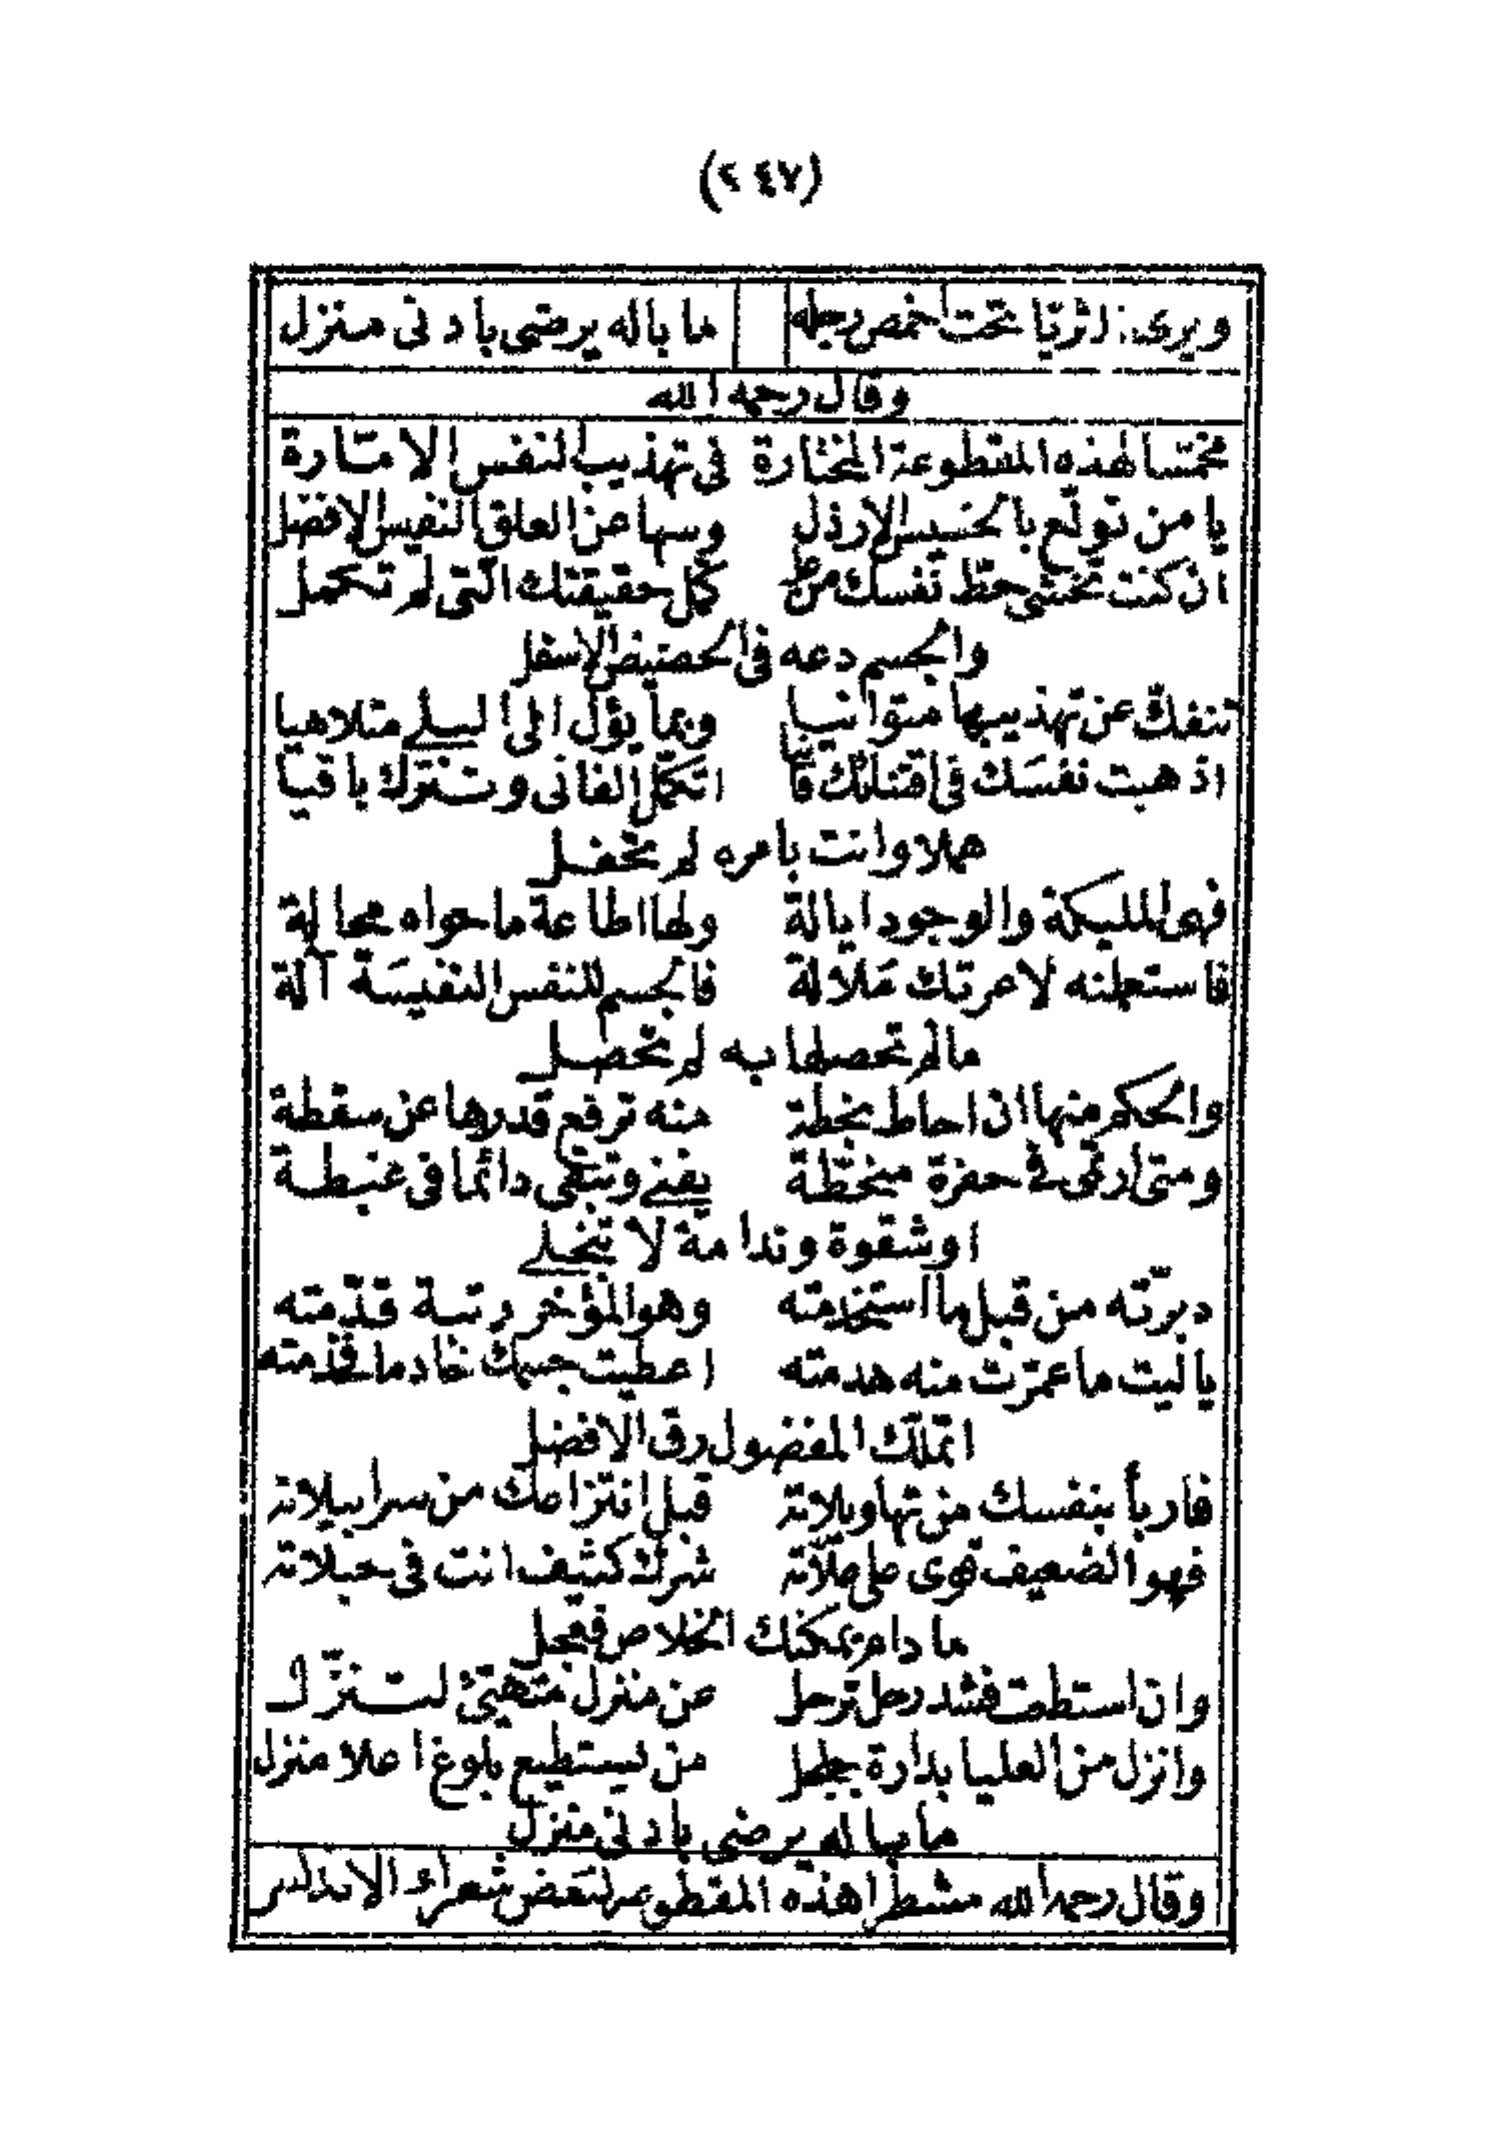 (٢٤٧)
ويرى الثريا تحت اخمص رجله ما باله يرضى بادنى منزل
وقال رحمه الله
مخمّسا لهذه المقطوعة المختارة فى تهذيب النفس الامّارة
يا من تولّع بالخسيس الارذل وسها عن العلق النفيس الافضل
ان كنت تخشى حظّ نفسك من علِ كمّل حقيقتك الّتى لم تكمل
والجسم دعه فى الحضيض الاسفل
تنفكّ عن تهذيبها متوانيا وبما يؤل الى البلى متلاهيا
اذهبت نفسَك فى اقتنائك فانيا اتكمّل الفانى وتترك باقيا
هملا وانت بامره لم تحفل
فهى المليكة والوجود ايالة ولها اطاعة ما حواه محالة
فاستعملنه لامرتك علالة فالجسم للنفس النفيسَة آلة
ما لم تحصلها به لم تحصل
والحكم منها ان احاط بخطة منه ترفع قدرها عن سقطة
ومتى ارتمى فى حفرة منحطّة يفنى وتبقى دائما فى غبطة
او شقوة وندامة لا تنجلى
دبرّته من قبل ما استخدمته وهو المؤخر رتبة قدّمته
يا ليت ما عمرّت منه هدمته اعطيت جسمك خادما فخدمته
اتملّك المفضول رق الافضل
فاربأ بنفسك من تهاويلاته قبل انتزاعك من سرابيلاته
فهو الضعيف قوى على علّاته شرك كثيف انت فى حبلاته
ما دام يمكنك الخلاص فعجل
وان استطعت فشد رحل ترحل عن منزل متهيّئ لتنزّل
وانزل من العليا بدارة جلجل من يستطيع بلوغ اعلا منزل
ما باله يرضى بادنى منزل
وقال رحمه الله مشطرا هذه المقطوعة لبعض شعراء الاندلس